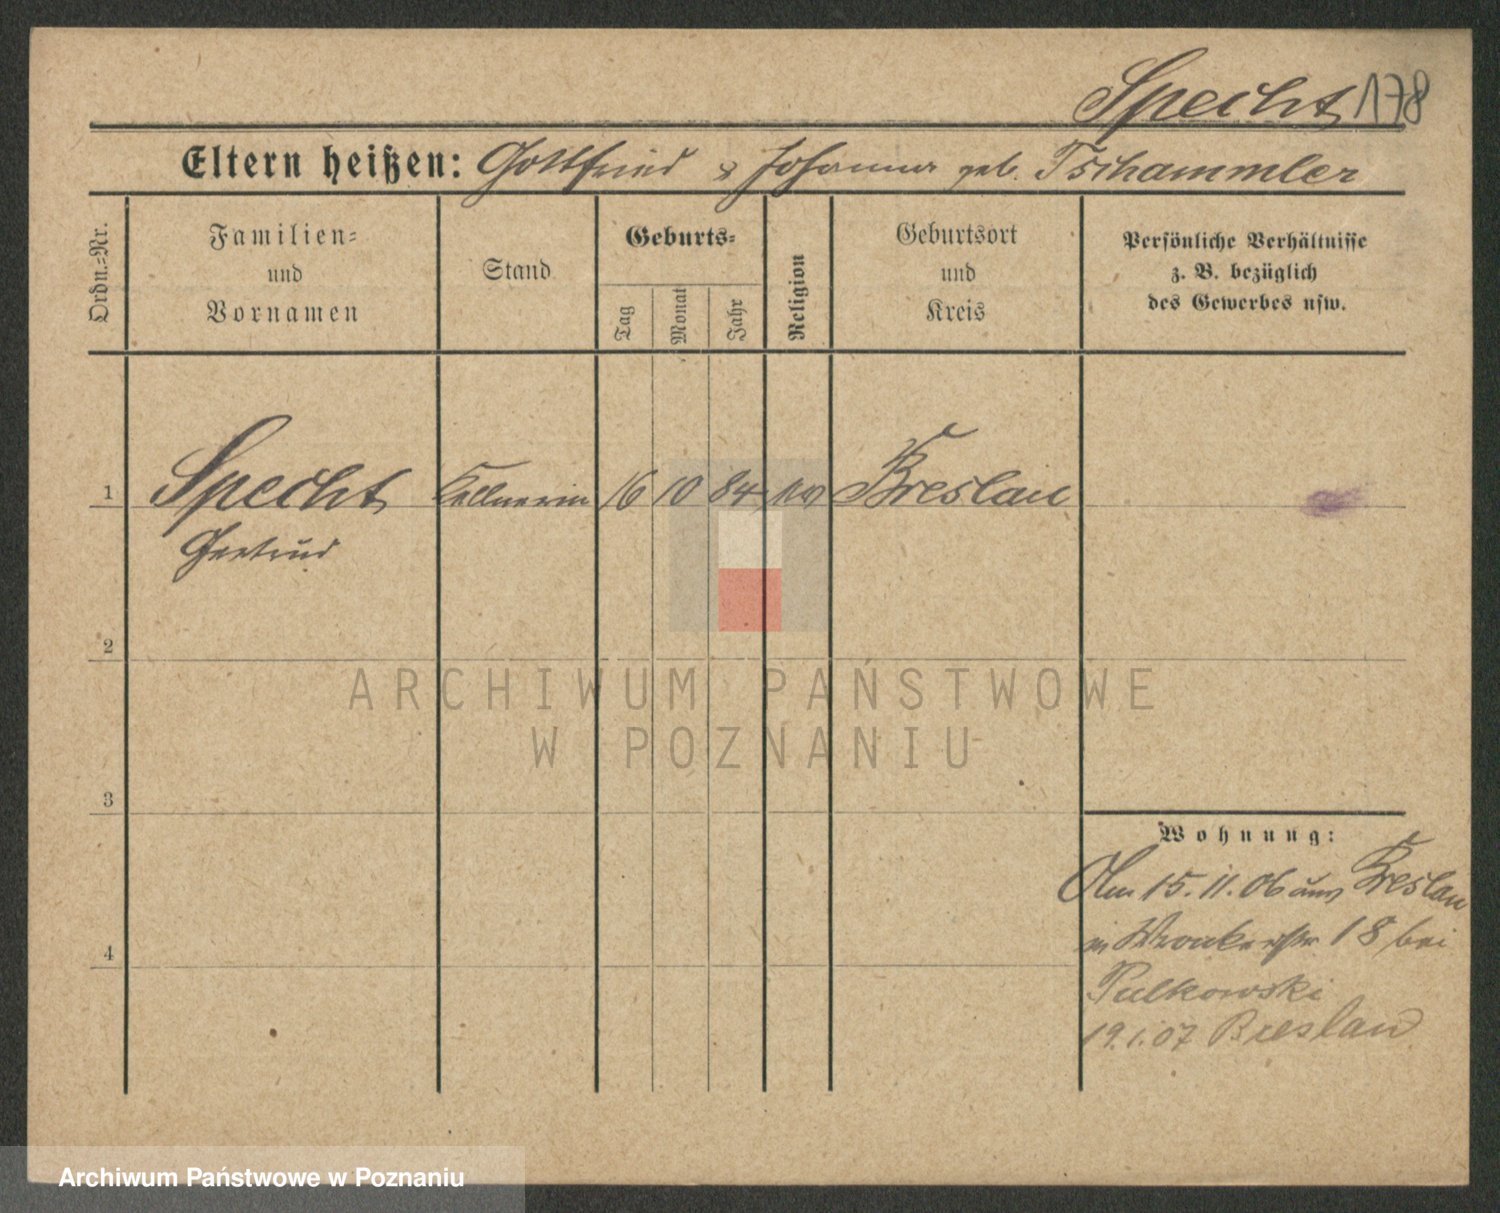 Specht 178
Eltern heißen: Gottfried & Johanna geb. Tschammler
Ordn.-Nr.
Familien-
und
Vornamen
Stand
Geburts-
Tag
Monat
Jahr
Religion
Geburtsort
und
Kreis
Persönliche Verhältnisse
z. B. bezüglich
des Gewerbes usw.
1 Specht Kellnerin 16 10 84 Breslau
Gertrud
2
3
4
ARCHIWUM PAŃSTWOWE
W POZNANIU
Wohnung:
Am 15.11.06 aus Breslau
in Wronkerstr 18 bei
Pulkowski
19.1.07 Breslau
Archiwum Państwowe w Poznaniu